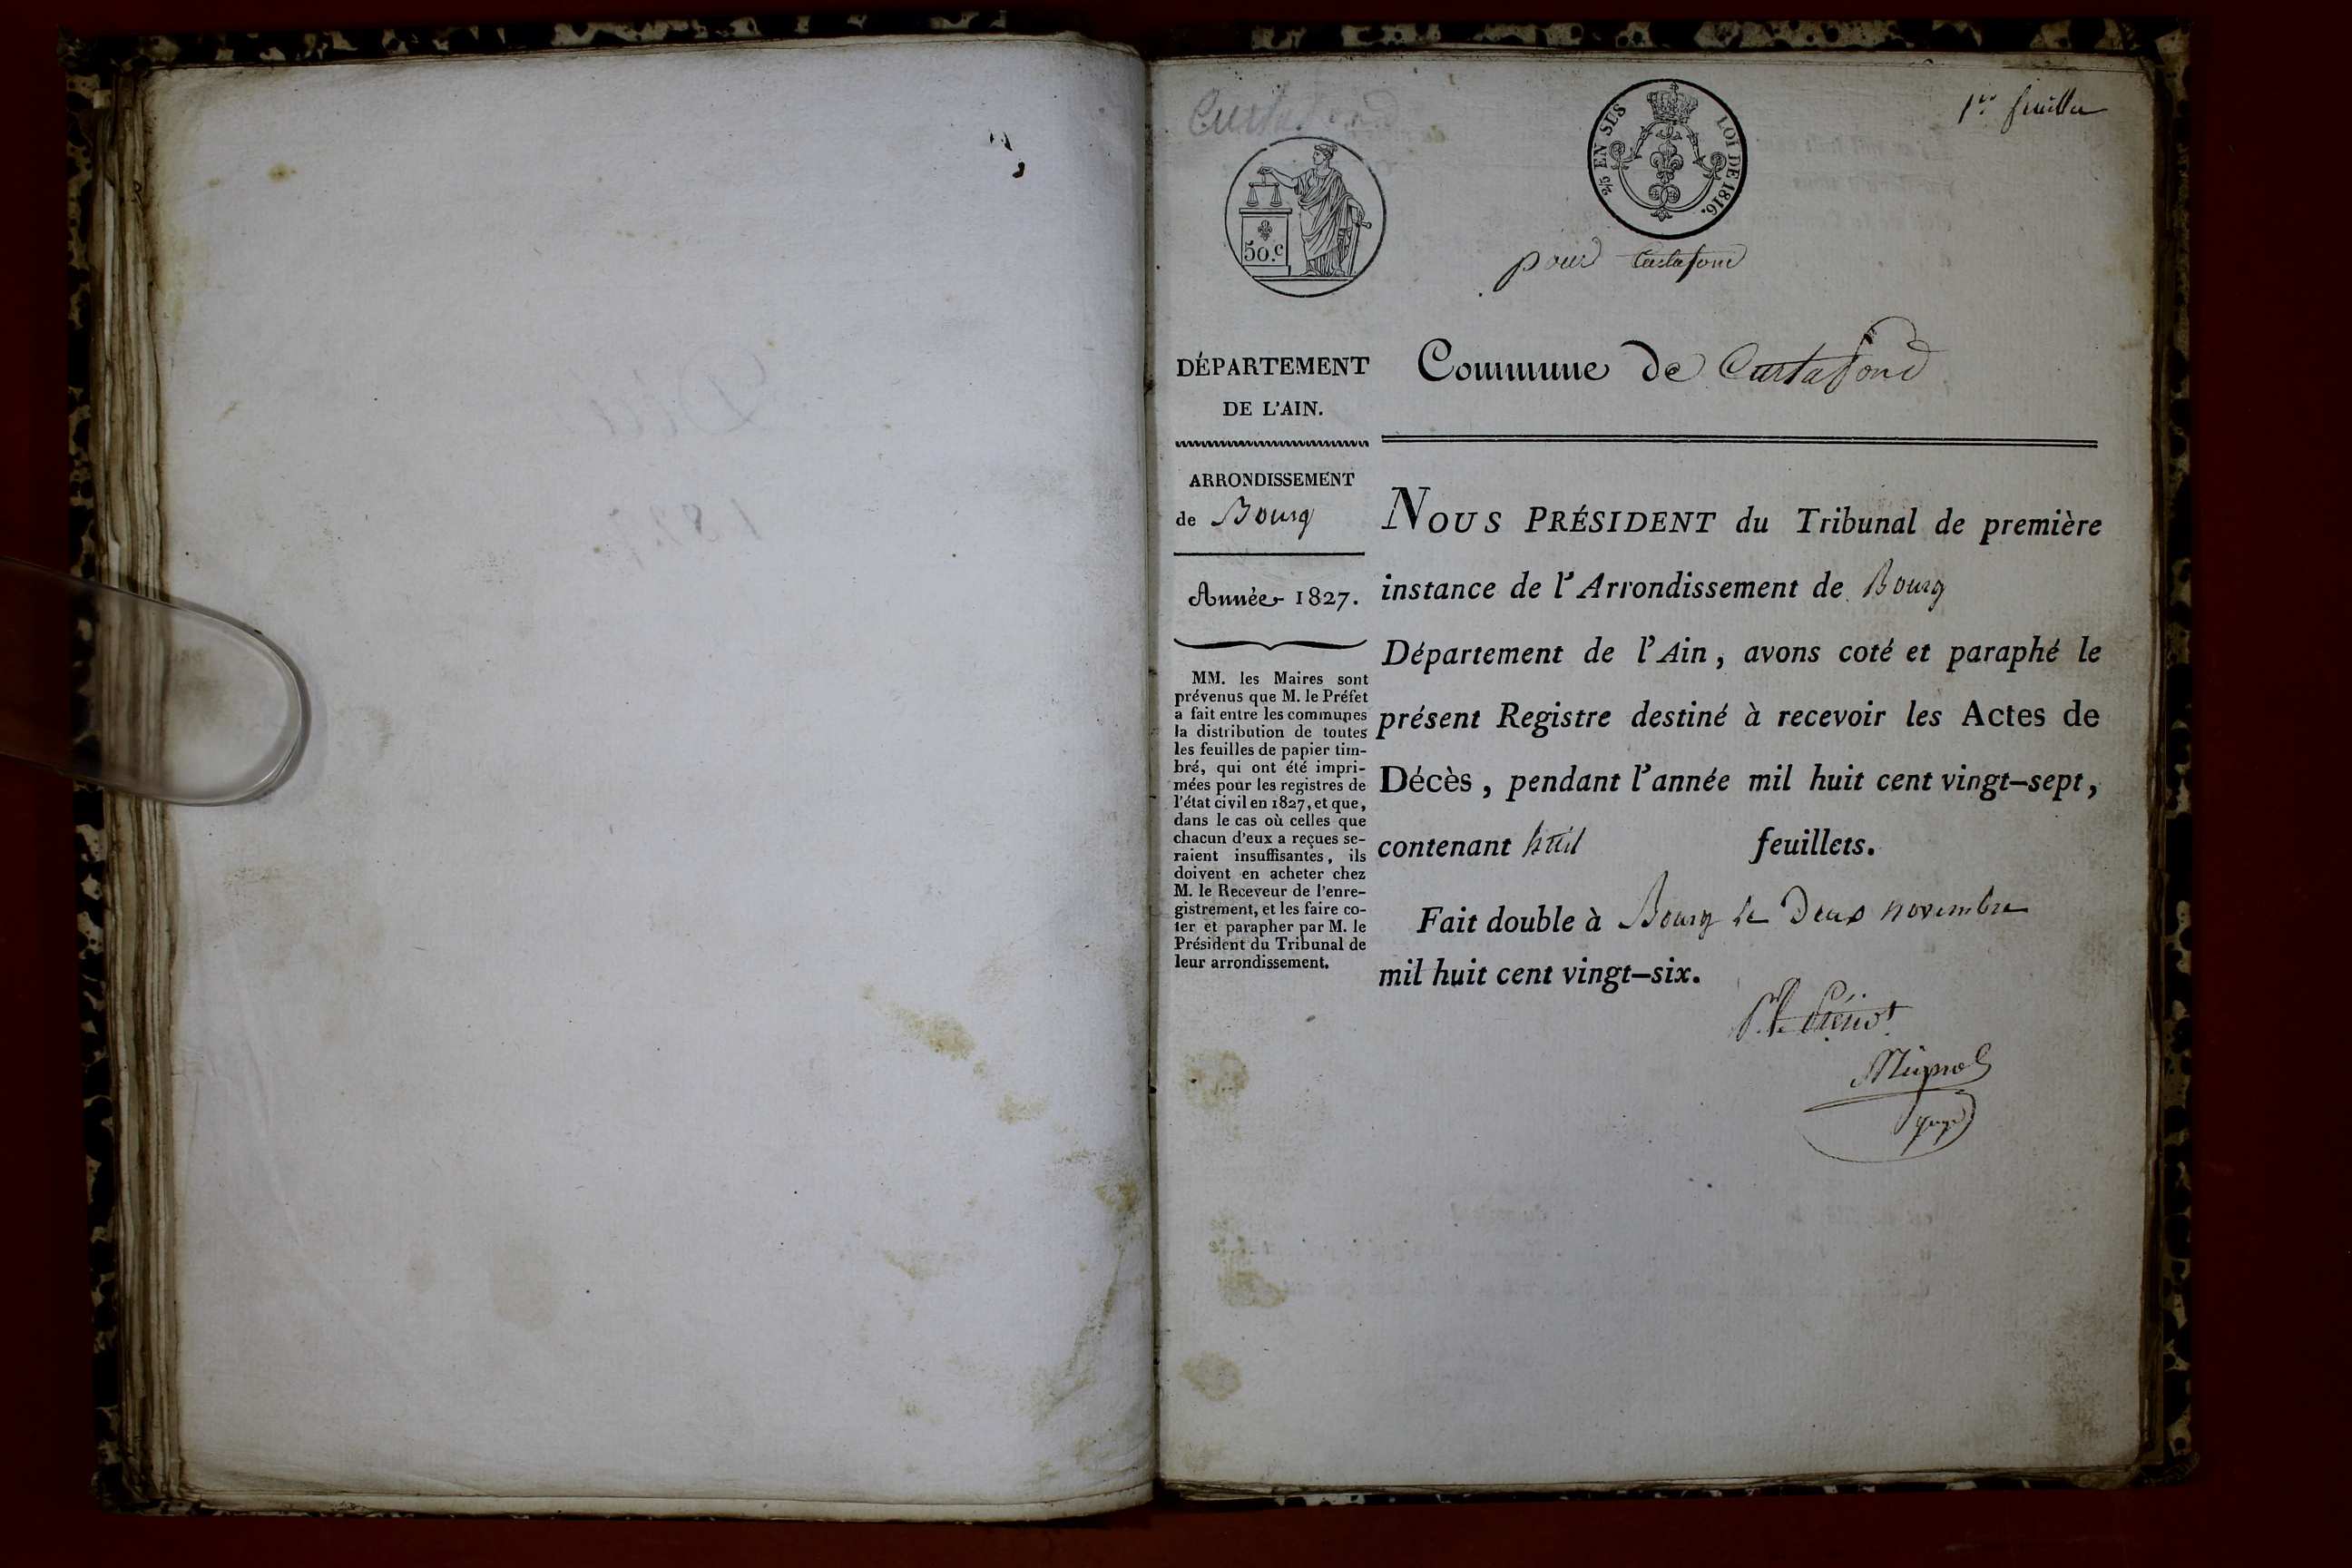 1er feuillet
Curtafond
2/5 EN SUS
LOI DE 1816.
50.c
pour Curtafond
DÉPARTEMENT
DE L'AIN.
Commune de Curtafond
ARRONDISSEMENT
de Bourg
Année 1827.
MM. les Maires sont
prévenus que M. le Préfet
a fait entre les communes
la distribution de toutes
les feuilles de papier tim-
bré, qui ont été impri-
mées pour les registres de
l'état civil en 1827, et que,
dans le cas où celles que
chacun d'eux a reçues se-
raient insuffisantes, ils
doivent en acheter chez
M. le Receveur de l'enre-
gistrement, et les faire co-
ter et parapher par M. le
Président du Tribunal de
leur arrondissement.
NOUS PRÉSIDENT du Tribunal de première
instance de l'Arrondissement de Bourg
Département de l'Ain, avons coté et paraphé le
présent Registre destiné à recevoir les Actes de
Décès, pendant l'année mil huit cent vingt-sept,
contenant huit feuillets.
Fait double à Bourg le Deux novembre
mil huit cent vingt-six.
P. le
juge